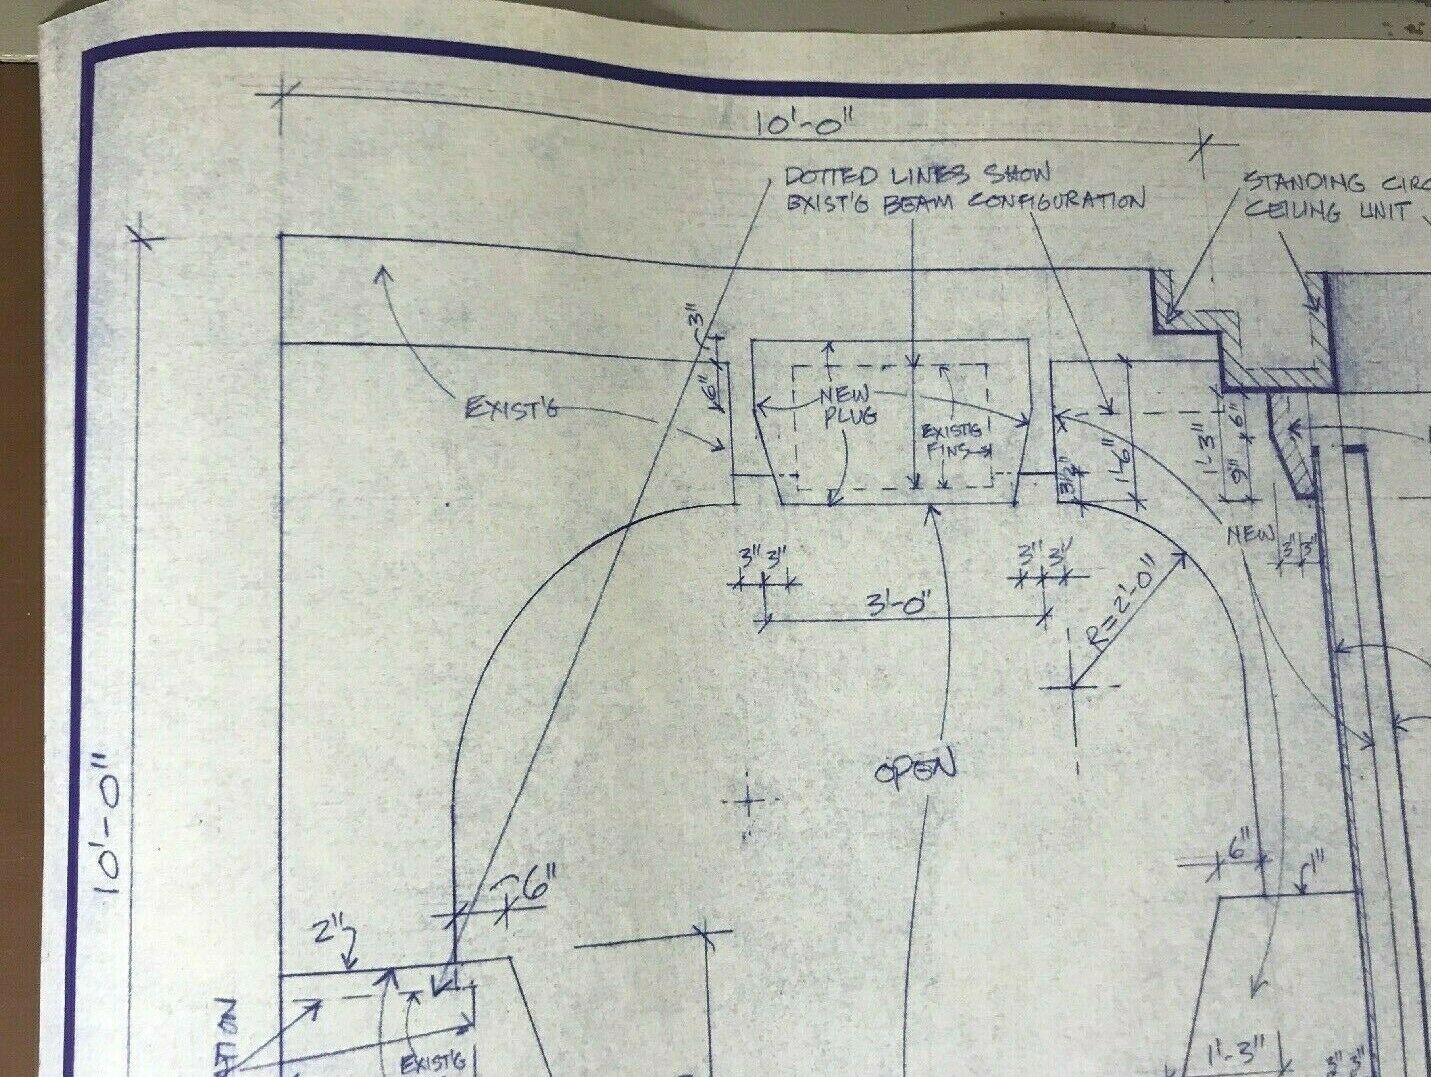 10'-0"
DOTTED LINES SHOW
EXIST'G BEAM CONFIGURATION
STANDING CIRC
CEILING UNIT
3"
6"
EXIST'G
NEW
PLUG
EXIST'G
FINS
3½"
1'-6"
1'-3"
6"
9"
NEW
3" 3"
3" 3"
3" 3"
3'-0"
R=2'-0"
OPEN
10'-0"
6"
6"
1"
2"
EXIST'G
1'-3"
3" 3"